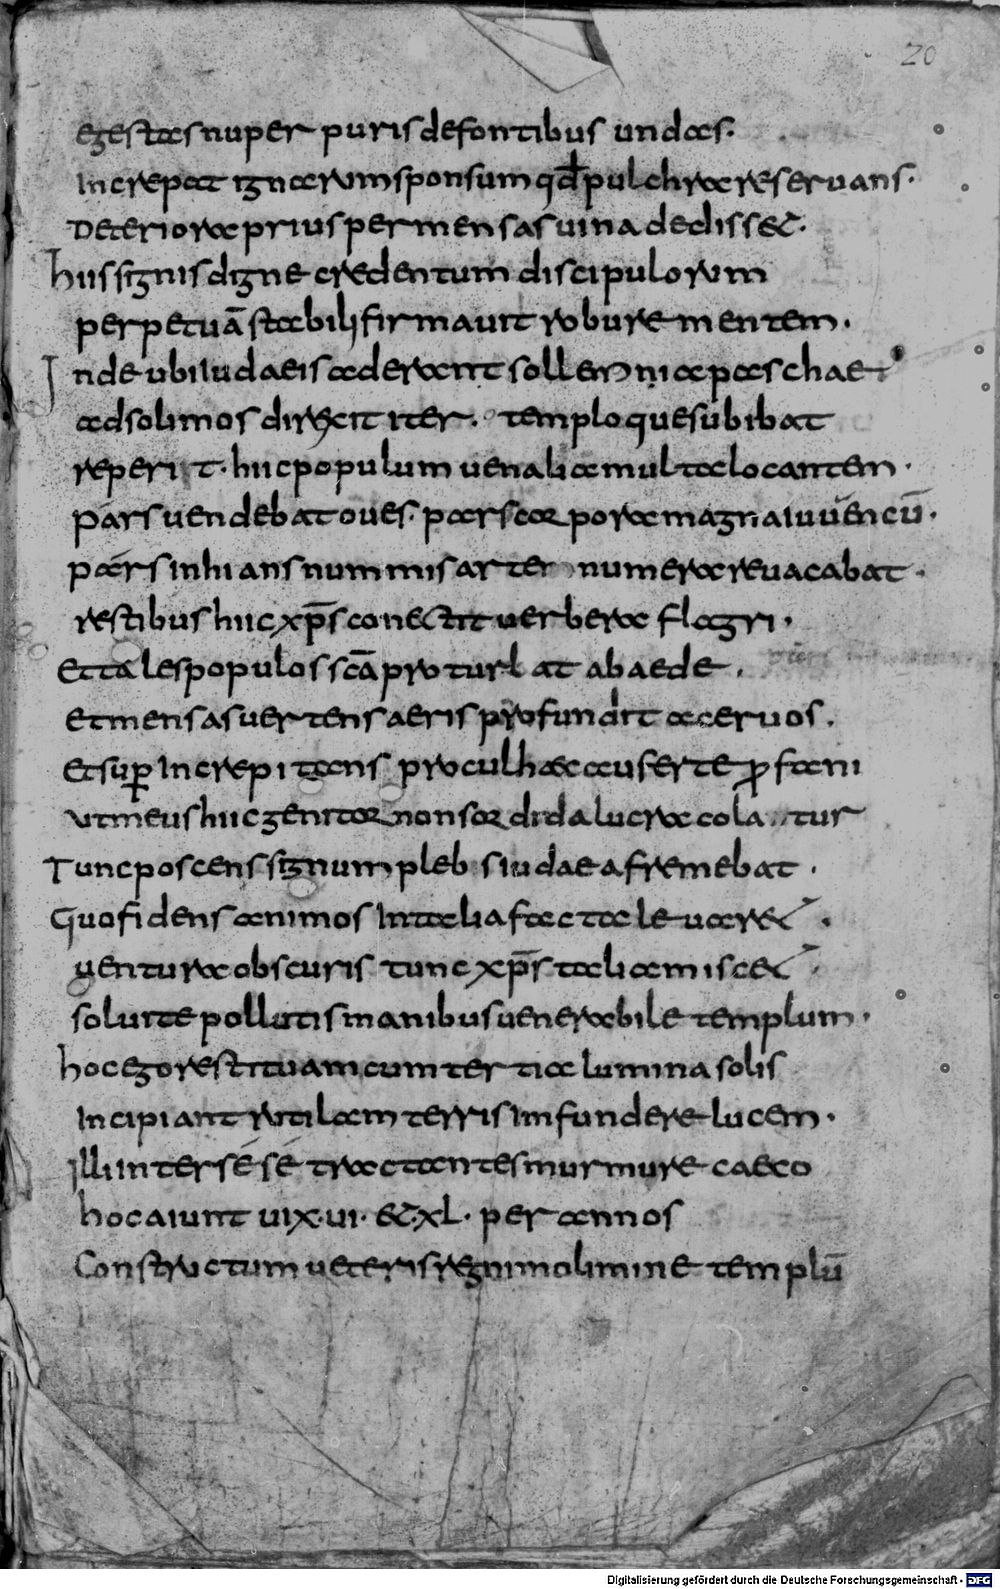 20
egestas nuper puris de fontibus undas.
Increpat ignarum sponsum qđ pulchra reseruans.
Deteriora prius per mensas uina dedisset.
hiis signis digne credentum discipulorum
perpetuā stabili firmauit robure mentem.
Inde ubi iudaeis aderant sollemnia paschae
ad solimos direcit iter. temploque subibat
reperit. hiic populum uenalia multa locantem.
pars uendebat oues. pars corpora magna iuuencū.
pars inhians nummis artem numera reuacabat.
restibus hiic xp̄s conectit uerbera flagri.
Et tales populos scā proturbat ab aede.
Et mensas uertens aeris profundit aceruos.
Et sup̱ Increpitans procul haec auferte ꝓfani
ut meus hiic genitor non sordida lucra colatur
Tunc poscens signum plebs iudaea fremebat.
Quo fidens animos In talia facta leuaret.
uentura obscuris tunc xp̄s talia miscet.
soluite pollutis manibus uenerabile templum.
hoc ego restituam cum tertia lumina solis
Incipiant rutilam terris Imfundere lucem.
Illi Inter sése tractantes murmure caeco
hoc aiunt uix. ui. et. xl. per annos
Constructum ueteris regni molimine templū
Digitalisierung gefördert durch die Deutsche Forschungsgemeinschaft - DFG